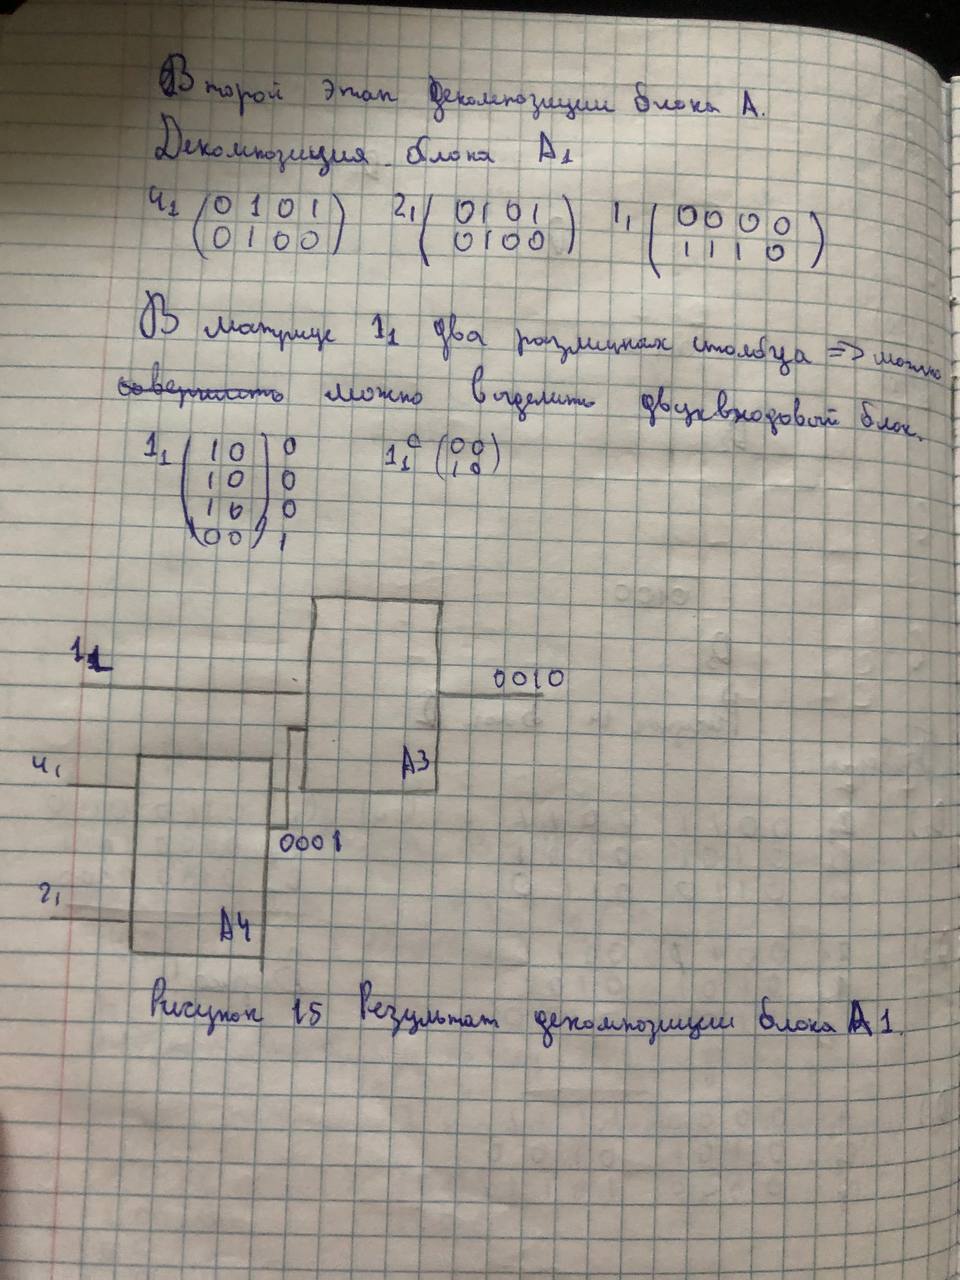 Второй этап декомпозиции блока А.
Декомпозиция блока А1
4₁ (0 1 0 1 / 0 1 0 0) 2₁ (0 1 0 1 / 0 1 0 0) 1₁ (0 0 0 0 / 1 1 1 0)
В матрице 1₁ два различных столбца => можно
можно выделить двухвходовой блок.
1₁ (1 0) 0 1₁ᶜ (0 0 / 1 0)
(1 0) 0
(1 0) 0
(0 0) 1
1₁
0010
4₁
А3
0001
2₁
А4
Рисунок 15 Результат декомпозиции блока А1.